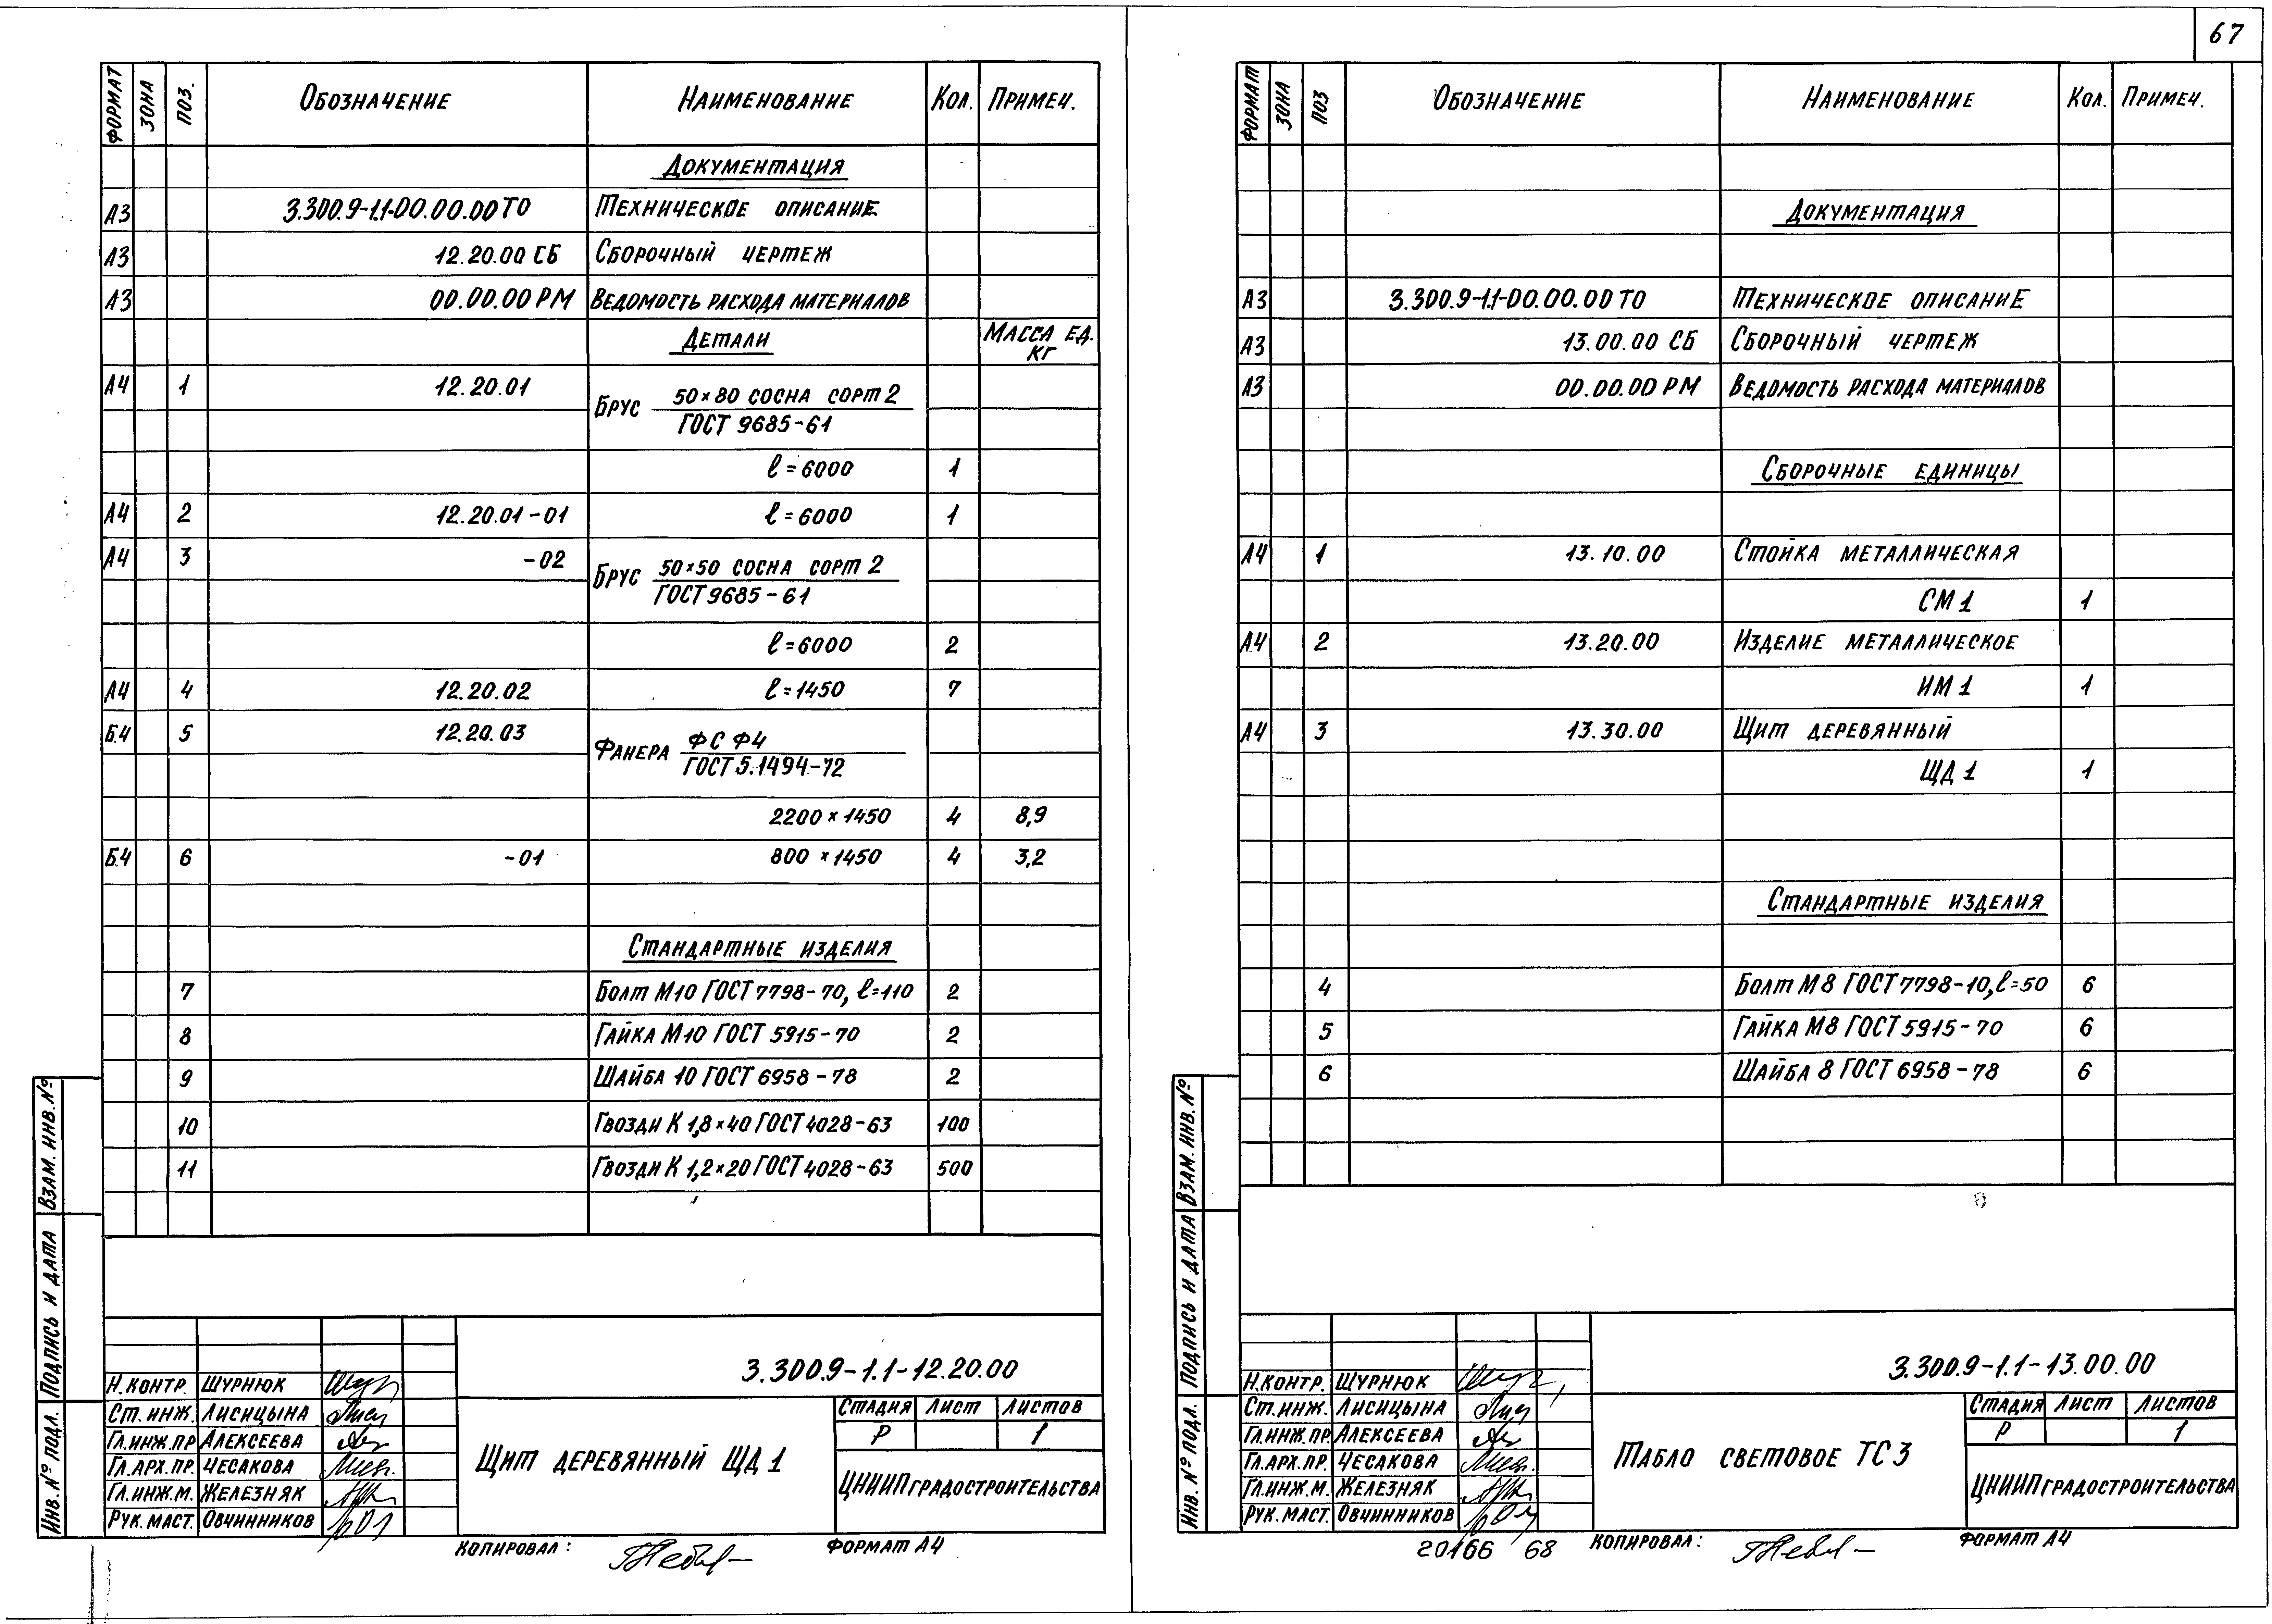 67
ФОРМАТ ЗОНА ПОЗ. ОБОЗНАЧЕНИЕ НАИМЕНОВАНИЕ КОЛ. ПРИМЕЧ.
ДОКУМЕНТАЦИЯ
А3 3.300.9-1.1-00.00.00 ТО ТЕХНИЧЕСКОЕ ОПИСАНИЕ
А3 12.20.00 СБ СБОРОЧНЫЙ ЧЕРТЕЖ
А3 00.00.00 РМ ВЕДОМОСТЬ РАСХОДА МАТЕРИАЛОВ
ДЕТАЛИ МАССА ЕД. КГ
А4 1 12.20.01 БРУС 50×80 СОСНА СОРТ 2
ГОСТ 9685-61
ℓ=6000 1
А4 2 12.20.01-01 ℓ=6000 1
А4 3 -02 БРУС 50×50 СОСНА СОРТ 2
ГОСТ 9685-61
ℓ=6000 2
А4 4 12.20.02 ℓ=1450 7
Б.4 5 12.20.03 ФАНЕРА ФС Ф4
ГОСТ 5.1494-72
2200×1450 4 8,9
Б.4 6 -01 800×1450 4 3,2
СТАНДАРТНЫЕ ИЗДЕЛИЯ
7 БОЛТ М10 ГОСТ 7798-70, ℓ=110 2
8 ГАЙКА М10 ГОСТ 5915-70 2
9 ШАЙБА 10 ГОСТ 6958-78 2
10 ГВОЗДИ К 1,8×40 ГОСТ 4028-63 100
11 ГВОЗДИ К 1,2×20 ГОСТ 4028-63 500
ИНВ. № ПОДЛ. ПОДПИСЬ И ДАТА ВЗАМ. ИНВ. №
3.300.9-1.1-12.20.00
Н.КОНТР. ШУРНЮК
СТ. ИНЖ. ЛИСИЦЫНА
ГЛ.ИНЖ.ПР АЛЕКСЕЕВА
ГЛ.АРХ.ПР. ЧЕСАКОВА
ГЛ.ИНЖ.М. ЖЕЛЕЗНЯК
РУК.МАСТ. ОВЧИННИКОВ
ЩИТ ДЕРЕВЯННЫЙ ЩД 1
СТАДИЯ ЛИСТ ЛИСТОВ
Р 1
ЦНИИП ГРАДОСТРОИТЕЛЬСТВА
КОПИРОВАЛ: ФОРМАТ А4
ФОРМАТ ЗОНА ПОЗ ОБОЗНАЧЕНИЕ НАИМЕНОВАНИЕ КОЛ. ПРИМЕЧ.
ДОКУМЕНТАЦИЯ
А3 3.300.9-1.1-00.00.00 ТО ТЕХНИЧЕСКОЕ ОПИСАНИЕ
А3 13.00.00 СБ СБОРОЧНЫЙ ЧЕРТЕЖ
А3 00.00.00 РМ ВЕДОМОСТЬ РАСХОДА МАТЕРИАЛОВ
СБОРОЧНЫЕ ЕДИНИЦЫ
А4 1 13.10.00 СТОЙКА МЕТАЛЛИЧЕСКАЯ
СМ 1 1
А4 2 13.20.00 ИЗДЕЛИЕ МЕТАЛЛИЧЕСКОЕ
ИМ 1 1
А4 3 13.30.00 ЩИТ ДЕРЕВЯННЫЙ
ЩД 1 1
СТАНДАРТНЫЕ ИЗДЕЛИЯ
4 БОЛТ М8 ГОСТ 7798-70, ℓ=50 6
5 ГАЙКА М8 ГОСТ 5915-70 6
6 ШАЙБА 8 ГОСТ 6958-78 6
ИНВ. № ПОДЛ. ПОДПИСЬ И ДАТА ВЗАМ. ИНВ. №
3.300.9-1.1-13.00.00
Н.КОНТР. ШУРНЮК
СТ.ИНЖ. ЛИСИЦЫНА
ГЛ.ИНЖ.ПР. АЛЕКСЕЕВА
ГЛ.АРХ.ПР. ЧЕСАКОВА
ГЛ.ИНЖ.М. ЖЕЛЕЗНЯК
РУК.МАСТ. ОВЧИННИКОВ
ТАБЛО СВЕТОВОЕ ТС 3
СТАДИЯ ЛИСТ ЛИСТОВ
Р 1
ЦНИИП ГРАДОСТРОИТЕЛЬСТВА
20166 68 КОПИРОВАЛ: ФОРМАТ А4